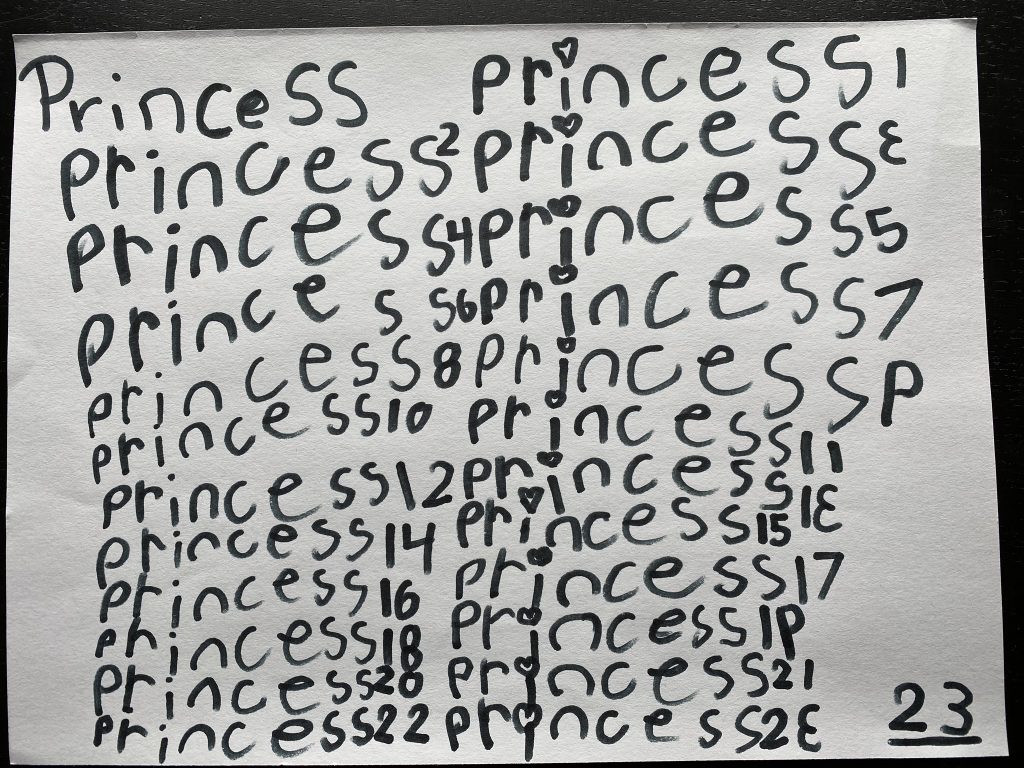 Princess princess1
princess2 princess3
princess4 princess5
princess6 princess7
princess8 princess9
princess10 princess11
princess12 princess13
princess14 princess15
princess16 princess17
princess18 princess19
princess20 princess21
princess22 princess23
23